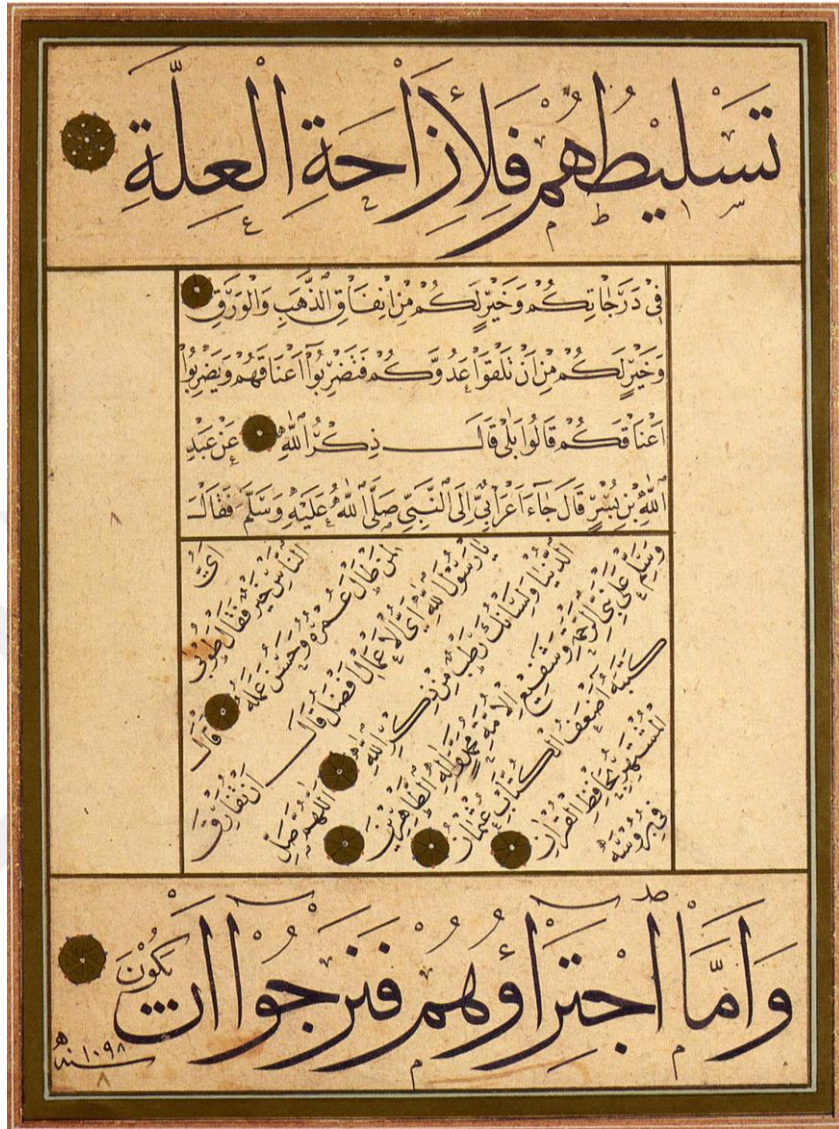 تَسْلِيطُهُمْ فَلِأَزَاحَةِ الْعِلَّةِ
فِي دَرَجَاتِكُمْ وَخَيْرٍ لَكُمْ مِنْ اِنْفَاقِ الذَّهَبِ وَالْوَرَقِ
وَخَيْرٍ لَكُمْ مِنْ اَنْ تَلْقَوْا عَدُوَّكُمْ فَتَضْرِبُوا اَعْنَاقَهُمْ وَيَضْرِبُوا
اَعْنَاقَكُمْ قَالُوا بَلٰى قَالَ ذِكْرُ اللّٰهِ عَنْ عَبْدِ
اللّٰهِ بْنِ بُسْرٍ قَالَ جَاءَ اَعْرَابِيٌّ اِلَى النَّبِيِّ صَلَّى اللّٰهُ عَلَيْهِ وَسَلَّمَ فَقَالَ
اَيُّ
النَّاسِ خَيْرٌ فَقَالَ طُوبٰى
لِمَنْ طَالَ عُمْرُهُ وَحَسُنَ عَمَلُهُ قَالَ
يَا رَسُولَ اللّٰهِ اَيُّ الْاَعْمَالِ اَفْضَلُ قَالَ اَنْ تُفَارِقَ
الدُّنْيَا وَلِسَانُكَ رَطْبٌ مِنْ ذِكْرِ اللّٰهِ اَللّٰهُمَّ صَلِّ
وَسَلِّمْ عَلٰى نَبِيِّ الرَّحْمَةِ وَشَفِيعِ الْاُمَّةِ مُحَمَّدٍ وَاٰلِهِ الطَّاهِرِينَ
كَتَبَهُ اَضْعَفُ الْكُتَّابِ عُثْمَانُ
الْمُشْتَهِرُ بِحَافِظِ الْقُرْاٰنِ
فِي بُرُوسَه
وَاَمَّا اجْتِرَاؤُهُمْ فَنَرْجُوا اَنْ يَكُونَ
سنه ١٠٩٨